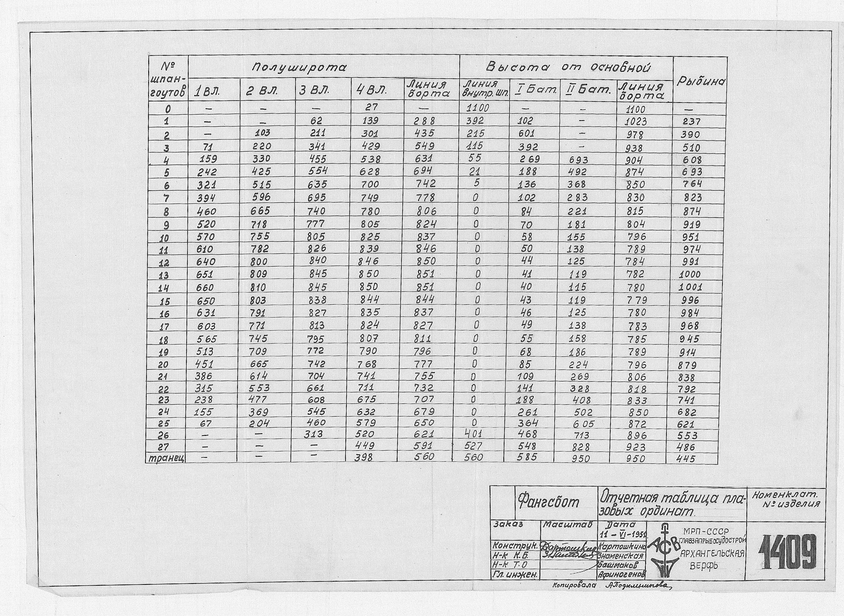 № шпан-гоутов Полуширота Высота от основной Рыбина
1 ВЛ. 2 ВЛ. 3 ВЛ. 4 ВЛ. Линия борта Линия внутр. шп. I Бат. II Бат. Линия борта
0 — — — 27 — 1100 — — 1100 —
1 — — 62 139 288 392 102 — 1023 237
2 — 103 211 301 435 215 601 — 978 390
3 71 220 341 429 549 115 392 — 938 510
4 159 330 455 538 631 55 269 693 904 608
5 242 425 554 628 694 21 188 492 874 693
6 321 515 635 700 742 5 136 368 850 764
7 394 596 695 749 778 0 102 283 830 823
8 460 665 740 780 806 0 84 221 815 874
9 520 718 777 805 824 0 70 181 804 919
10 570 755 805 825 837 0 58 155 796 951
11 610 782 826 839 846 0 50 138 789 974
12 640 800 840 846 850 0 44 125 784 991
13 651 809 845 850 851 0 41 119 782 1000
14 660 810 845 850 851 0 40 115 780 1001
15 650 803 838 844 844 0 43 119 779 996
16 631 791 827 835 837 0 46 125 780 984
17 603 771 813 824 827 0 49 138 783 968
18 565 745 795 807 811 0 55 158 785 945
19 513 709 772 790 796 0 68 186 789 914
20 451 665 742 768 777 0 85 224 796 879
21 386 614 704 741 755 0 109 269 806 838
22 315 553 661 711 732 0 141 328 818 792
23 238 477 608 675 707 0 188 408 833 741
24 155 369 545 632 679 0 261 502 850 682
25 67 204 460 579 650 0 364 605 872 621
26 — — 313 520 621 401 468 713 896 553
27 — — — 449 591 527 548 828 923 486
транец — — — 398 560 560 585 930 950 445
Фангсбот
Отчетная таблица пла-
зовых ординат.
Номенклат.
№ изделия
Заказ Масштаб Дата
11-VI-195
Конструк. Картошкина
Н-к К.Б. Знаменская
Н-к Т.О Башмаков
Гл. инжен. Афиногенов
АСВ
МРП-СССР
АРХАНГЕЛЬСКАЯ
ВЕРФЬ
1409
Копировала